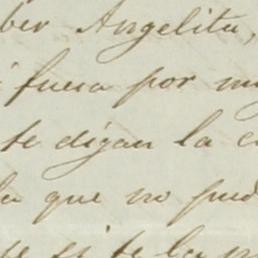 ber Angelita,
fuera por m
te digan la c
la que no pud